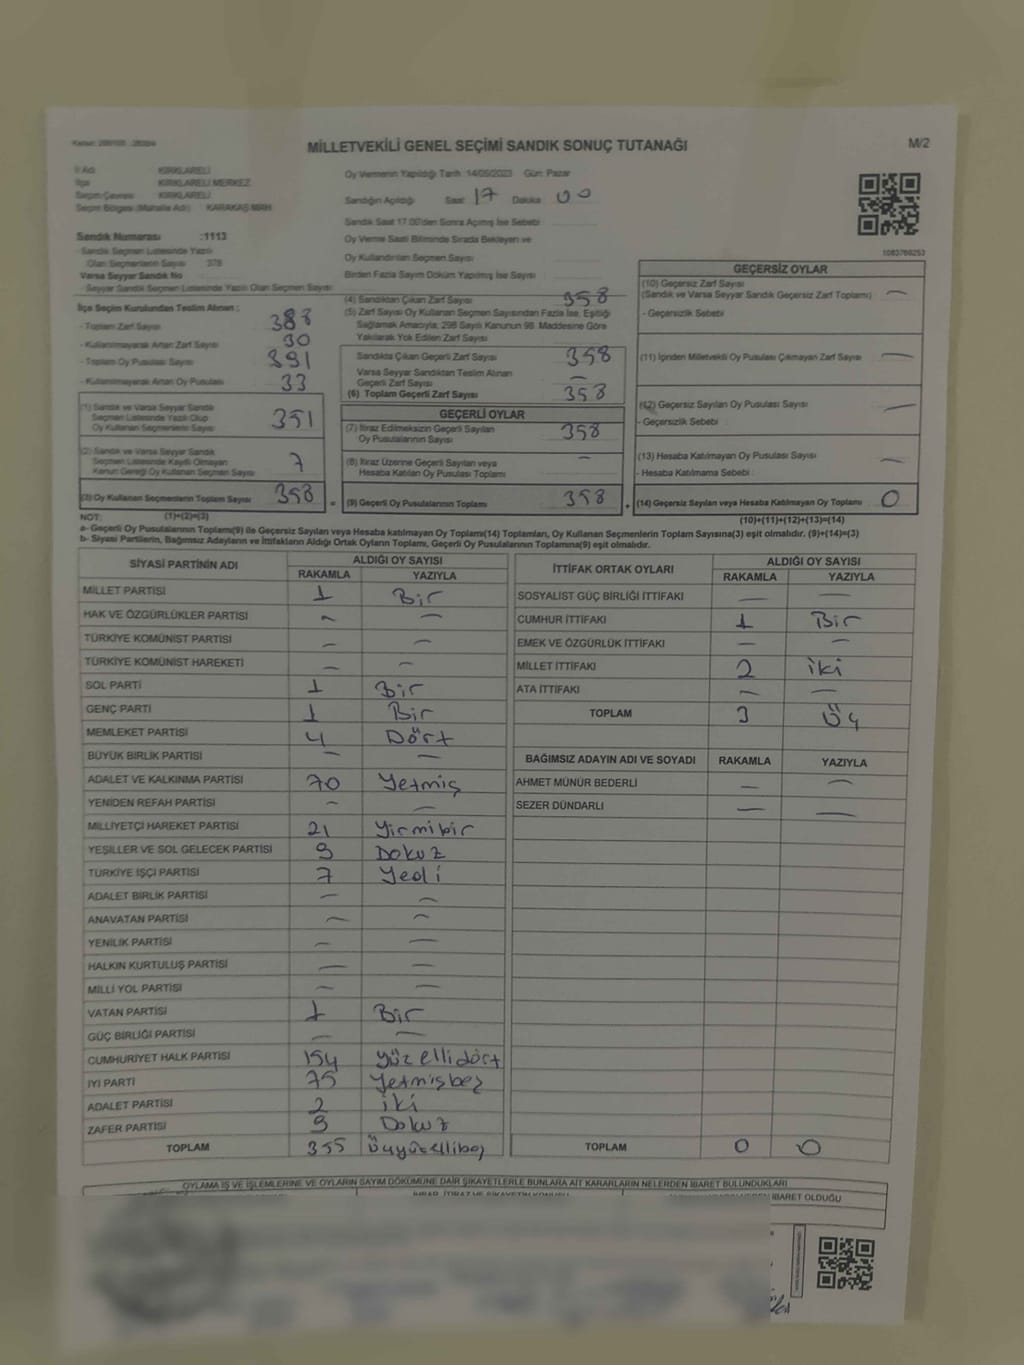 MİLLETVEKİLİ GENEL SEÇİMİ SANDIK SONUÇ TUTANAĞI
M/2
İl Adı KIRKLARELİ
İlçe KIRKLARELİ MERKEZ
Seçim Çevresi KIRKLARELİ
Seçim Bölgesi (Mahalle Adı) KARAKAŞ MAH
Sandık Numarası :1113
- Sandık Seçmen Listesinde Yazılı
Olan Seçmenlerin Sayısı : 378
Varsa Seyyar Sandık No
- Seyyar Sandık Seçmen Listesinde Yazılı Olan Seçmen Sayısı
Oy Vermenin Yapıldığı Tarih 14/05/2023 Gün: Pazar
Sandığın Açıldığı Saat 17 Dakika 00
Sandık Saat 17.00'den Sonra Açımış İse Sebebi
Oy Verme Saati Bitiminde Sırada Bekleyen ve
Oy Kullandırılan Seçmen Sayısı
Birden Fazla Sayım Döküm Yapılmış İse Sayısı
1083769253
İlçe Seçim Kurulundan Teslim Alınan ;
- Toplam Zarf Sayısı 388
- Kullanılmayarak Artan Zarf Sayısı 30
- Toplam Oy Pusulası Sayısı 391
- Kullanılmayarak Artan Oy Pusulası 33
(1) Sandık ve Varsa Seyyar Sandık
Seçmen Listesinde Yazılı Olup
Oy Kullanan Seçmenlerin Sayısı 351
(2) Sandık ve Varsa Seyyar Sandık
Seçmen Listesinde Kayıtlı Olmayan
Kanun Gereği Oy Kullanan Seçmen Sayısı 7
(3) Oy Kullanan Seçmenlerin Toplam Sayısı 358 =
(1)+(2)=(3)
(4) Sandıktan Çıkan Zarf Sayısı 358
(5) Zarf Sayısı Oy Kullanan Seçmen Sayısından Fazla İse, Eşitliği
Sağlamak Amacıyla, 298 Sayılı Kanunun 98. Maddesine Göre
Yakılarak Yok Edilen Zarf Sayısı
Sandıkta Çıkan Geçerli Zarf Sayısı 358
Varsa Seyyar Sandıktan Teslim Alınan
Geçerli Zarf Sayısı —
(6) Toplam Geçerli Zarf Sayısı 358
GEÇERLİ OYLAR
(7) İtiraz Edilmeksizin Geçerli Sayılan
Oy Pusulalarının Sayısı 358
(8) İtiraz Üzerine Geçerli Sayılan veya
Hesaba Katılan Oy Pusulası Toplamı —
(9) Geçerli Oy Pusulalarının Toplamı 358 +
GEÇERSİZ OYLAR
(10) Geçersiz Zarf Sayısı
(Sandık ve Varsa Seyyar Sandık Geçersiz Zarf Toplamı) —
- Geçersizlik Sebebi
(11) İçinden Milletvekili Oy Pusulası Çıkmayan Zarf Sayısı —
(12) Geçersiz Sayılan Oy Pusulası Sayısı —
- Geçersizlik Sebebi
(13) Hesaba Katılmayan Oy Pusulası Sayısı —
- Hesaba Katılmama Sebebi
(14) Geçersiz Sayılan veya Hesaba Katılmayan Oy Toplamı 0
(10)+(11)+(12)+(13)=(14)
NOT:
a- Geçerli Oy Pusulalarının Toplamı(9) ile Geçersiz Sayılan veya Hesaba katılmayan Oy Toplamı(14) Toplamları, Oy Kullanan Seçmenlerin Toplam Sayısına(3) eşit olmalıdır. (9)+(14)=(3)
b- Siyasi Partilerin, Bağımsız Adayların ve İttifakların Aldığı Ortak Oyların Toplamı, Geçerli Oy Pusulalarının Toplamına(9) eşit olmalıdır.
SİYASİ PARTİNİN ADI ALDIĞI OY SAYISI
RAKAMLA YAZIYLA
MİLLET PARTİSİ 1 Bir
HAK VE ÖZGÜRLÜKLER PARTİSİ — —
TÜRKİYE KOMÜNİST PARTİSİ — —
TÜRKİYE KOMÜNİST HAREKETİ — —
SOL PARTİ 1 Bir
GENÇ PARTİ 1 Bir
MEMLEKET PARTİSİ 4 Dört
BÜYÜK BİRLİK PARTİSİ — —
ADALET VE KALKINMA PARTİSİ 70 Yetmiş
YENİDEN REFAH PARTİSİ — —
MİLLİYETÇİ HAREKET PARTİSİ 21 Yirmibir
YEŞİLLER VE SOL GELECEK PARTİSİ 9 Dokuz
TÜRKİYE İŞÇİ PARTİSİ 7 Yedi
ADALET BİRLİK PARTİSİ — —
ANAVATAN PARTİSİ — —
YENİLİK PARTİSİ — —
HALKIN KURTULUŞ PARTİSİ — —
MİLLİ YOL PARTİSİ — —
VATAN PARTİSİ 1 Bir
GÜÇ BİRLİĞİ PARTİSİ — —
CUMHURİYET HALK PARTİSİ 154 Yüzellidört
İYİ PARTİ 75 Yetmişbeş
ADALET PARTİSİ 2 iki
ZAFER PARTİSİ 9 Dokuz
TOPLAM 355 Üçyüzellibeş
İTTİFAK ORTAK OYLARI ALDIĞI OY SAYISI
RAKAMLA YAZIYLA
SOSYALİST GÜÇ BİRLİĞİ İTTİFAKI — —
CUMHUR İTTİFAKI 1 Bir
EMEK VE ÖZGÜRLÜK İTTİFAKI — —
MİLLET İTTİFAKI 2 iki
ATA İTTİFAKI — —
TOPLAM 3 Üç
BAĞIMSIZ ADAYIN ADI VE SOYADI RAKAMLA YAZIYLA
AHMET MÜNÜR BEDERLİ — —
SEZER DÜNDARLI — —
TOPLAM 0 0
OYLAMA İŞ VE İŞLEMLERİNE VE OYLARIN SAYIM DÖKÜMÜNE DAİR ŞİKAYETLERLE BUNLARA AİT KARARLARIN NELERDEN İBARET BULUNDUKLARI
İHBAR, İTİRAZ VE ŞİKAYETİN KONUSU
İBARET OLDUĞU